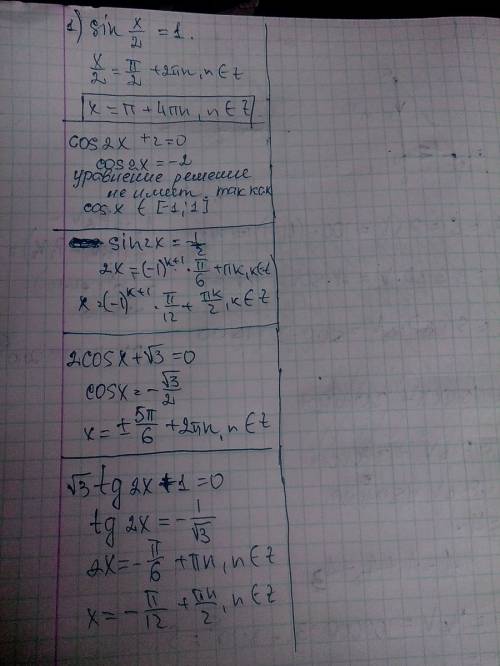 1) sin x/2 = 1.
x/2 = π/2 + 2πn, n ∈ Z
x = π + 4πn, n ∈ Z
cos2x + 2 = 0
cos2x = -2
уравнение решение
не имеет, так как
cosx ∈ [-1; 1]
sin2x = -1/2
2x = (-1)^(k+1) · π/6 + πk, k ∈ Z
x = (-1)^(k+1) · π/12 + πk/2, k ∈ Z
2cosx + √3 = 0
cosx = -√3/2
x = ± 5π/6 + 2πn, n ∈ Z
√3 tg 2x + 1 = 0
tg 2x = -1/√3
2x = -π/6 + πn, n ∈ Z
x = -π/12 + πn/2, n ∈ Z